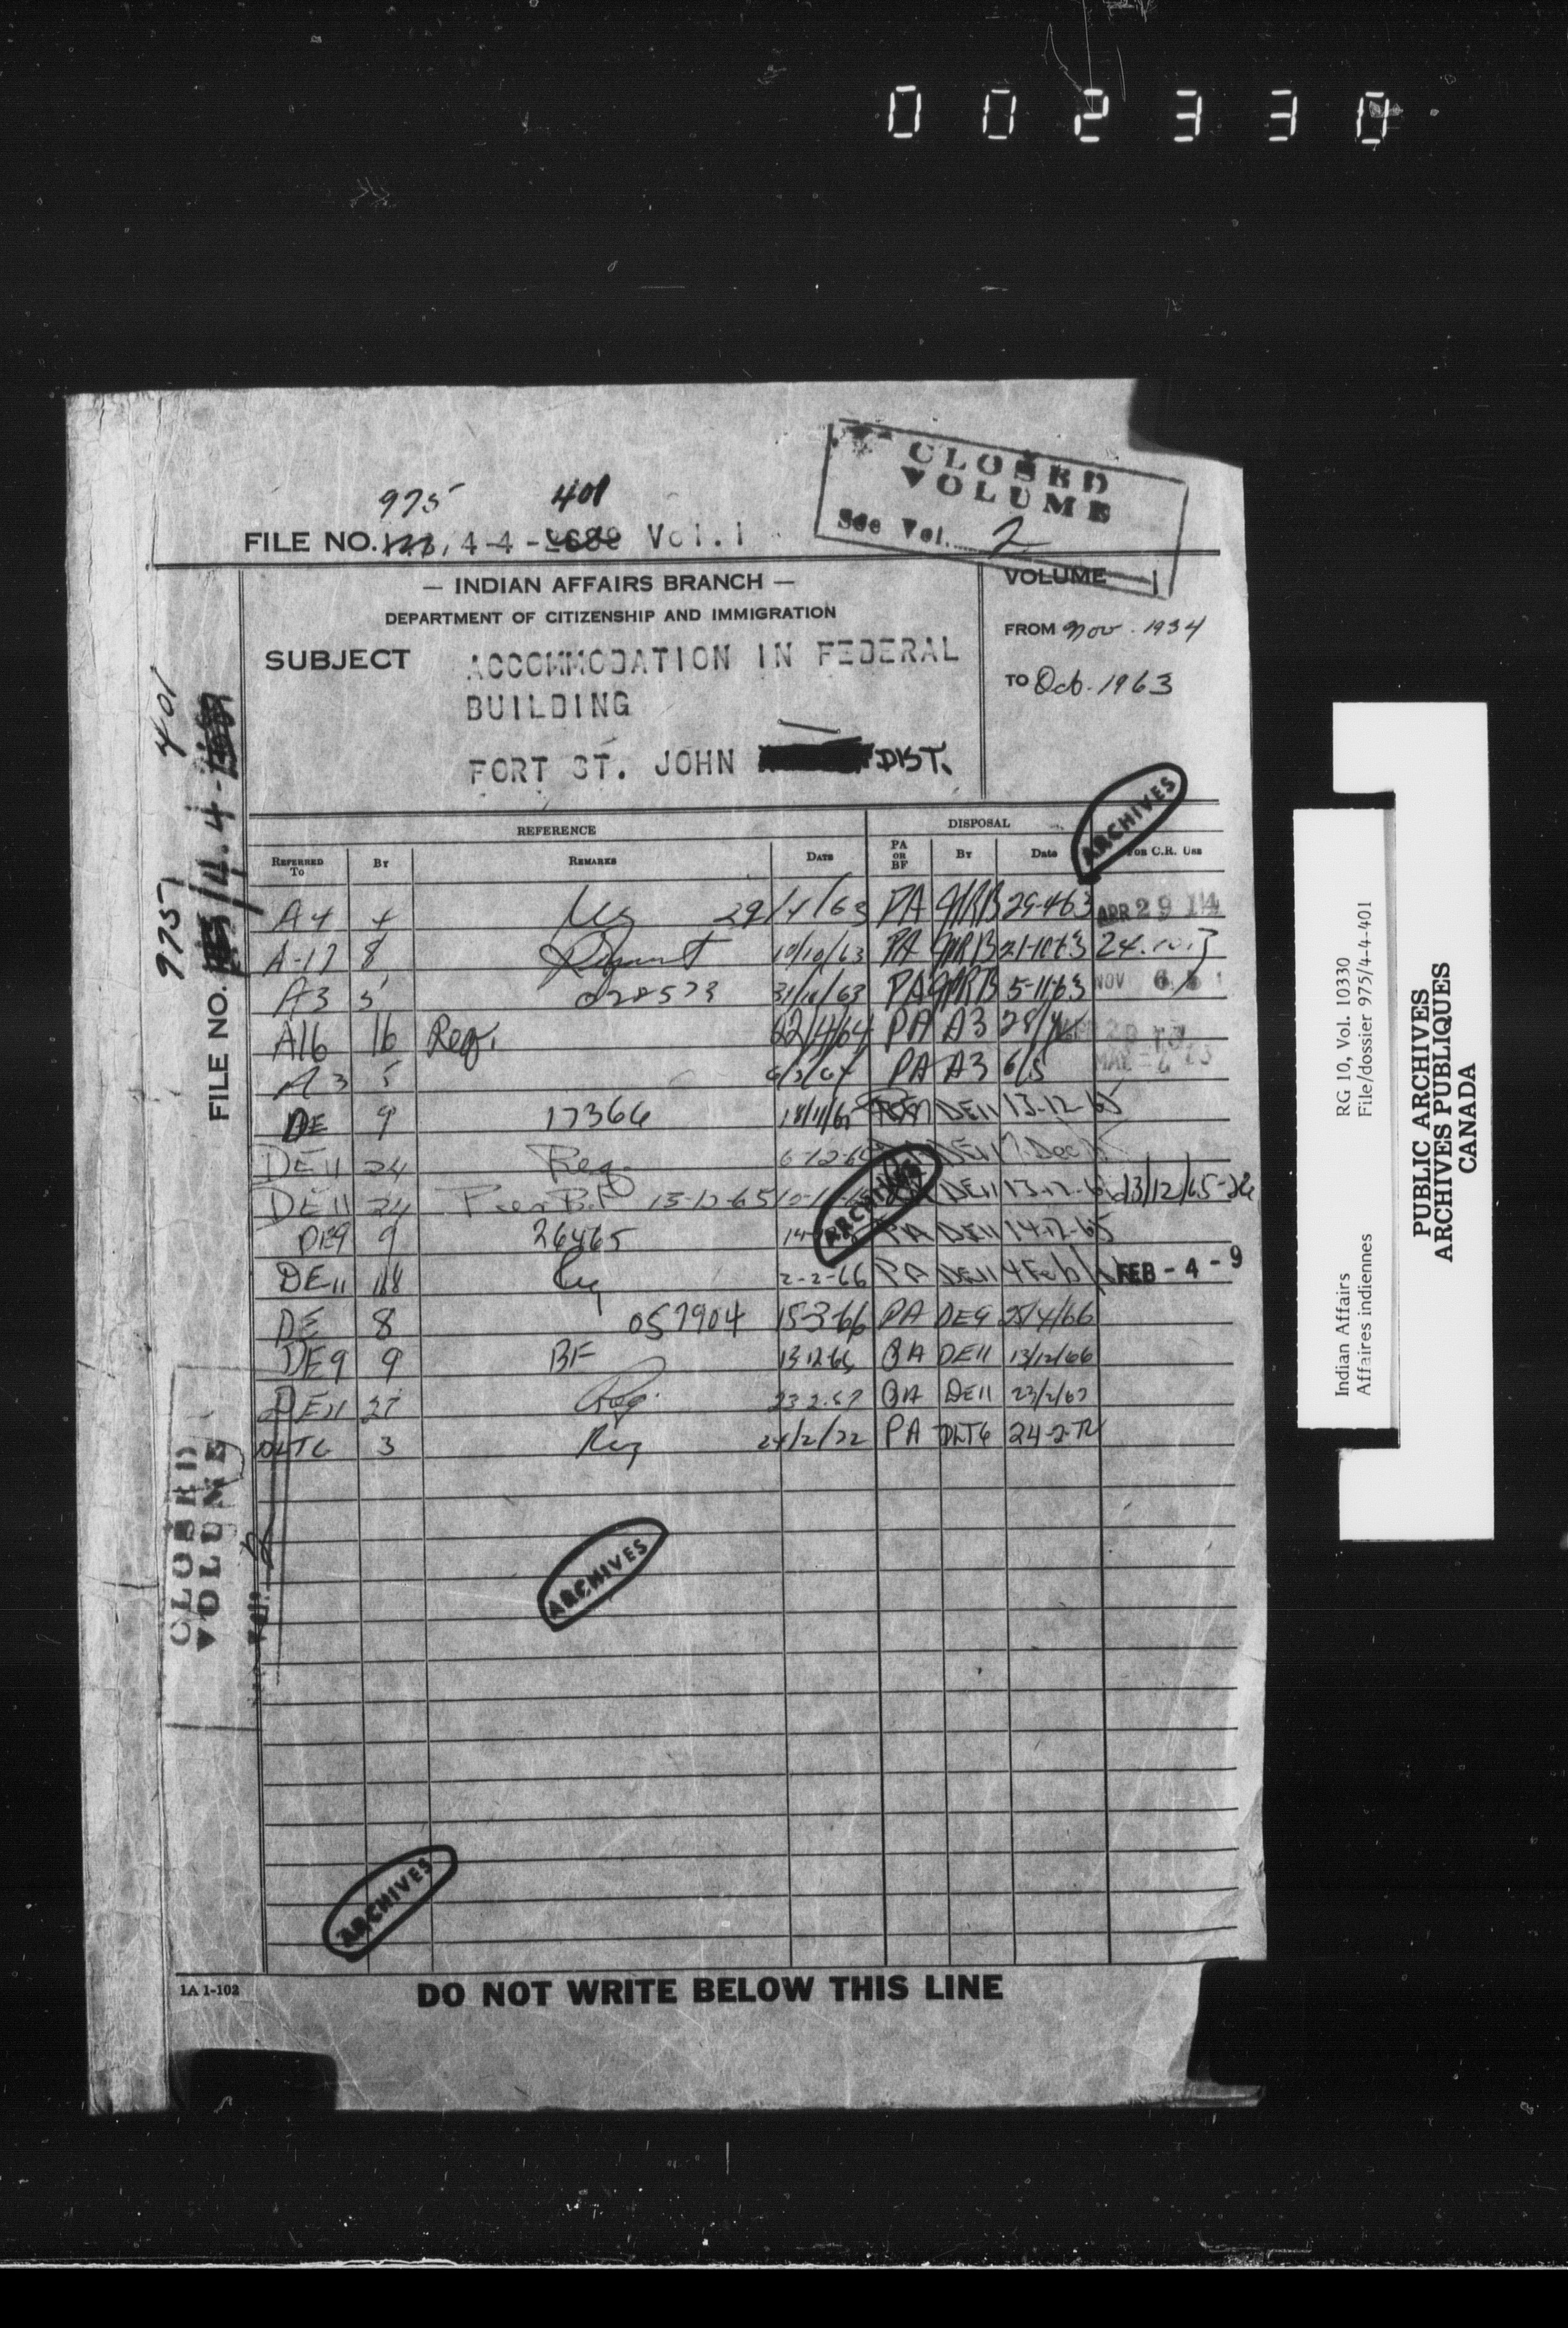 002330
975 401
FILE NO. 4-4- Vol. 1
CLOSED
VOLUME
See Vol. 2
— INDIAN AFFAIRS BRANCH —
DEPARTMENT OF CITIZENSHIP AND IMMIGRATION
SUBJECT ACCOMMODATION IN FEDERAL
BUILDING
FORT ST. JOHN DIST.
VOLUME 1
FROM Nov. 1934
TO Oct. 1963
FILE NO. 975/4-4-401
REFERENCE DISPOSAL
REFERRED TO BY REMARKS DATE PA OR BF BY Date FOR C.R. USE
ARCHIVES
A4 4 29/4/63 PA 29-4-63 APR 29
A-17 8 10/10/63 PA 21-10-63
A3 5 028573 31/10/63 PA 5-11-63 NOV 6
A16 16 Req. 22/4/64 PA A3 28/4
A3 5 PA A3 6/5 MAY - 6
DE 9 17366 DE11 13-12-65
DE11 24 Req. DE11 Dec
DE11 24 B.F. 13-12-65 DE11 13-12-65 13/12/65
DE9 9 26465 PA DE11 14-12-65
ARCHIVES
DE11 18 Req 2-2-66 PA DE11 4 Feb FEB - 4 - 9
DE 8 057904 15-3-66 PA DE9 25/4/66
DE9 9 BF 13-12-66 PA DE11 13/12/66
DE11 27 Req. 23-2-67 PA DE11 23/2/67
DLT6 3 Req 24/2/72 PA DLT6 24-2-72
CLOSED
VOLUME
ARCHIVES
ARCHIVES
1A 1-102
DO NOT WRITE BELOW THIS LINE
Indian Affairs RG 10, Vol. 10330
Affaires indiennes File/dossier 975/4-4-401
PUBLIC ARCHIVES
ARCHIVES PUBLIQUES
CANADA